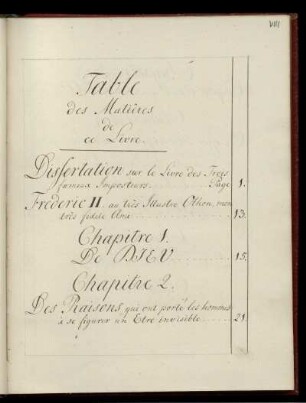 VIII
Table
des Matières
de
ce Livre.
Dissertation sur le Livre des Trois
fameux Imposteurs. Page 1.
Fréderic II. au très Illustre Othon, mon
très fidele Ami 13.
Chapitre 1.
De DIEV. 15.
Chapitre 2.
Des Raisons qui ont porté les hommes
à se figurer un Etre invisible 21.